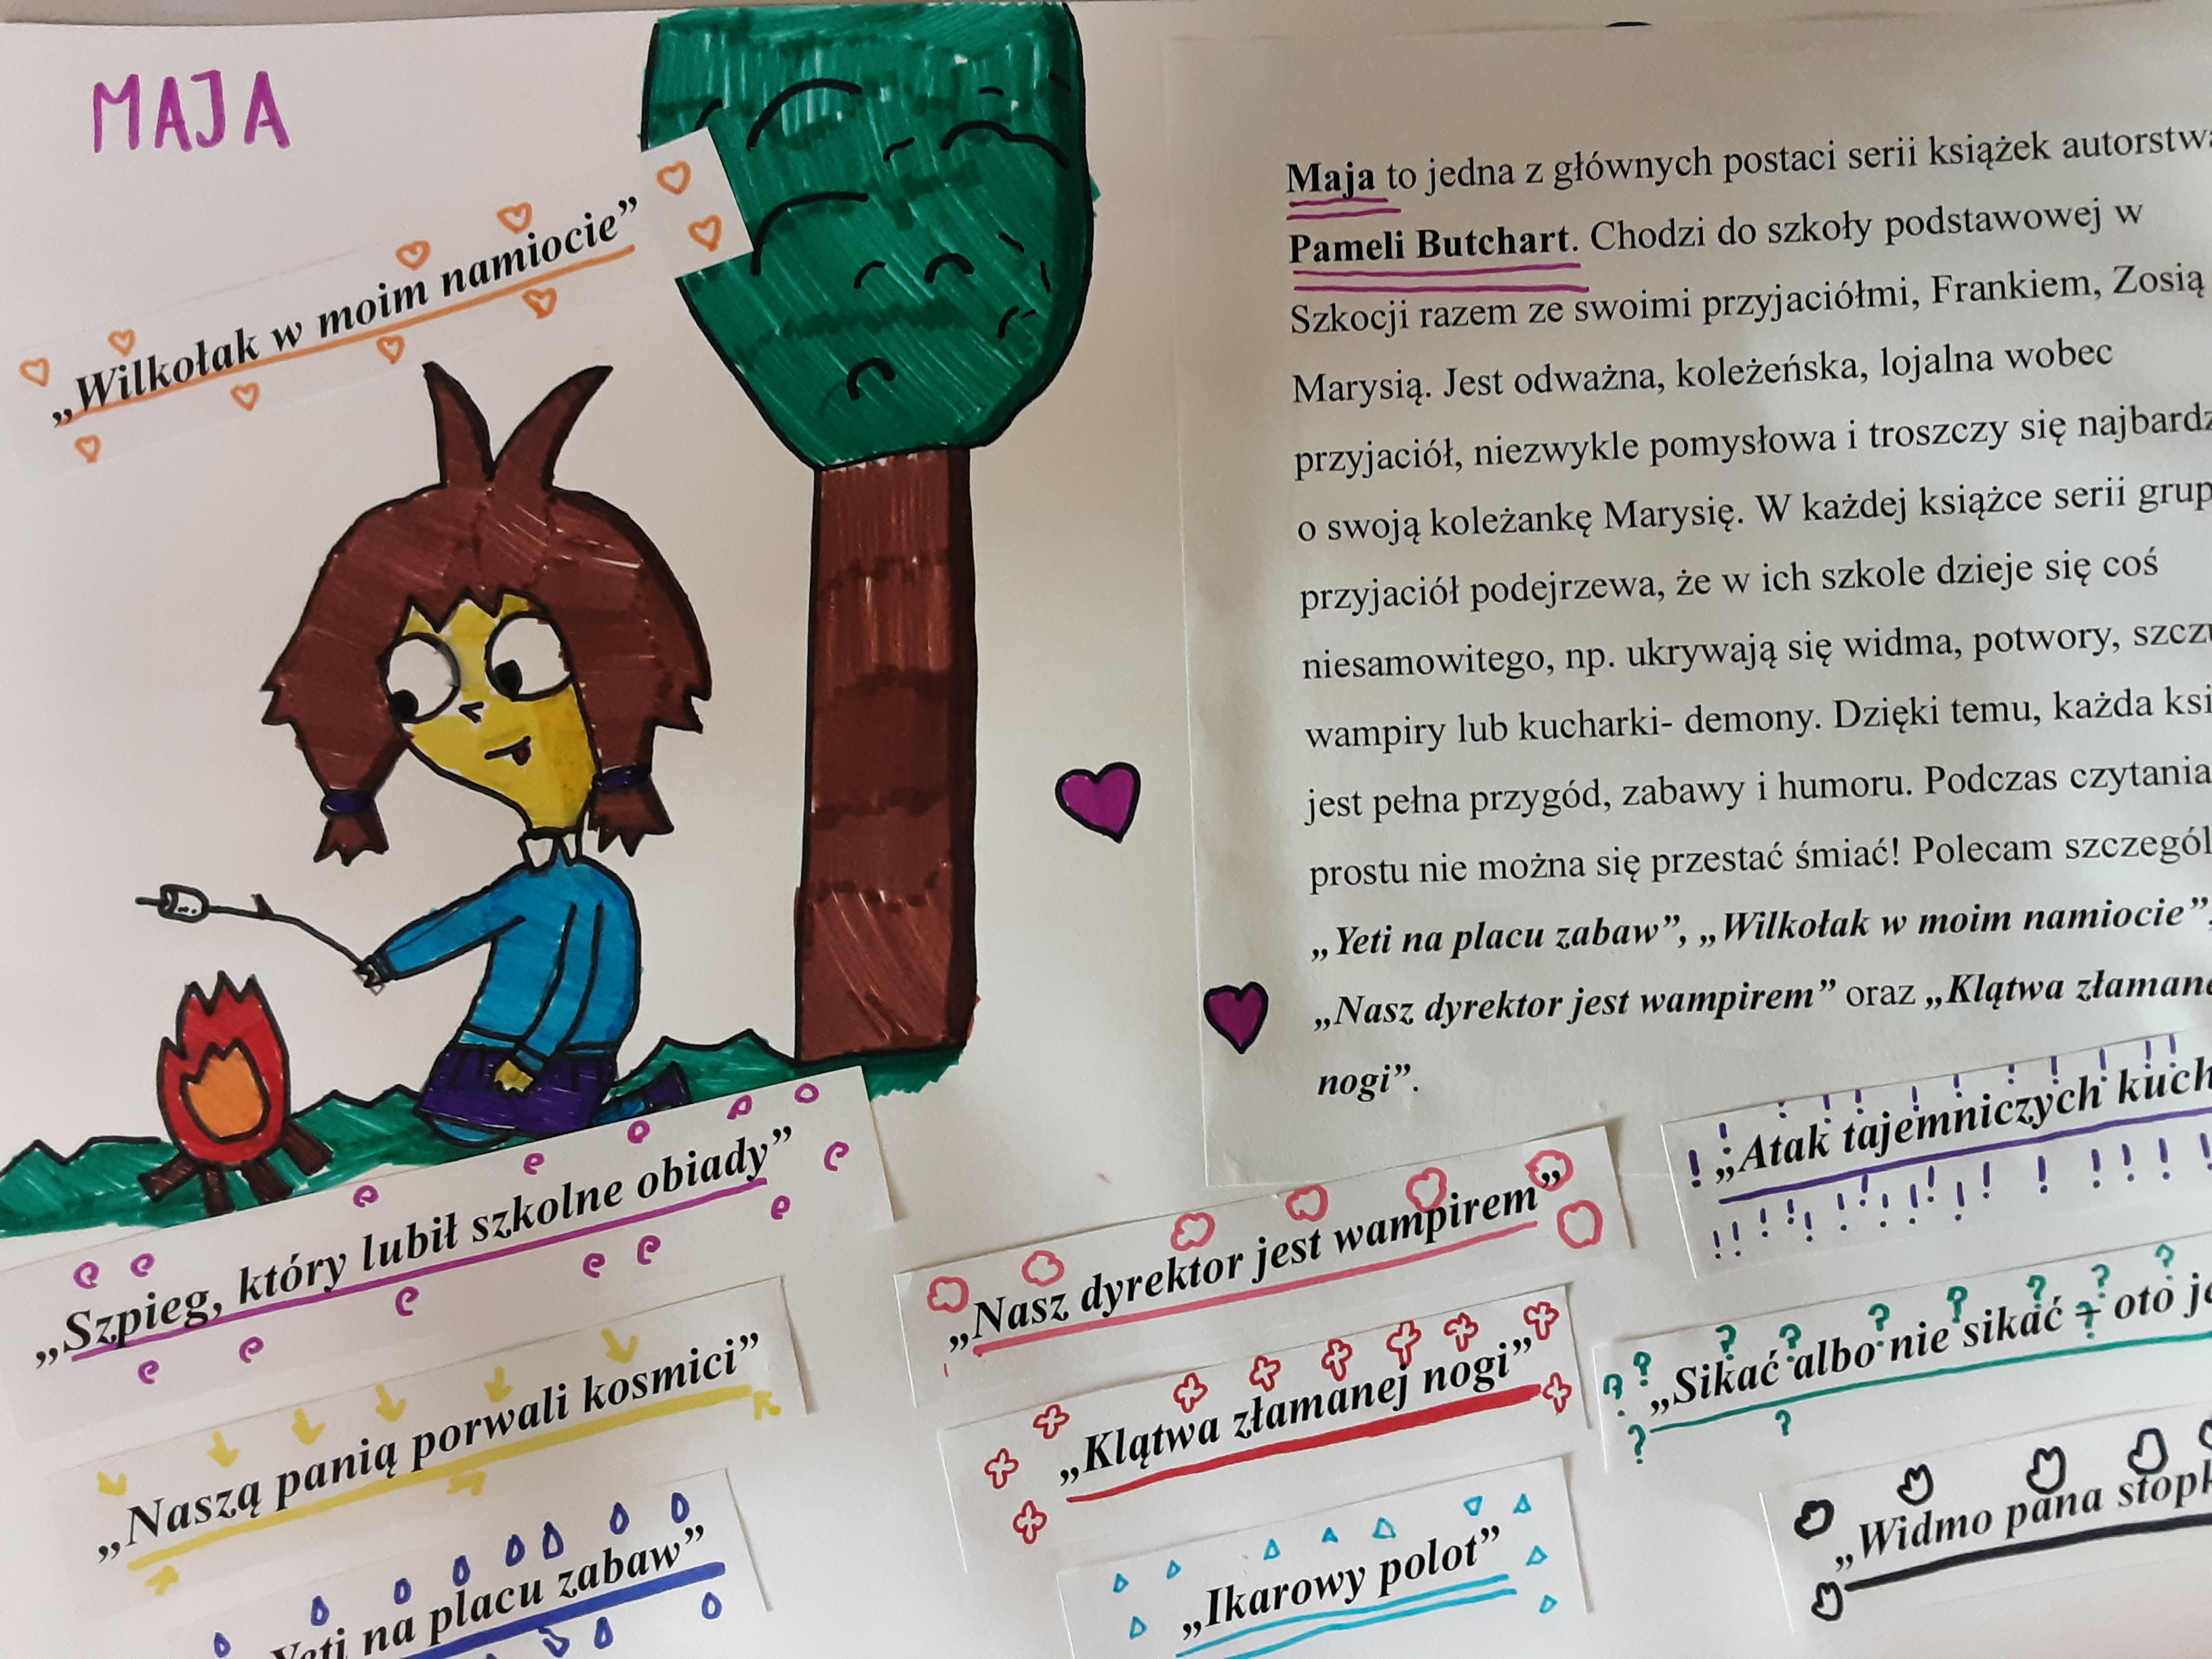 MAJA
„Wilkołak w moim namiocie”
Maja to jedna z głównych postaci serii książek
Pameli Butchart. Chodzi do szkoły podstawowej w
Szkocji razem ze swoimi przyjaciółmi, Frankiem, Zosią
Marysią. Jest odważna, koleżeńska, lojalna wobec
przyjaciół, niezwykle pomysłowa i troszczy się
o swoją koleżankę Marysię. W każdej książce serii
przyjaciół podejrzewa, że w ich szkole dzieje się coś
niesamowitego, np. ukrywają się widma, potwory,
wampiry lub kucharki- demony. Dzięki temu, każda
jest pełna przygód, zabawy i humoru. Podczas czytania
prostu nie można się przestać śmiać! Polecam
„Yeti na placu zabaw”, „Wilkołak w moim namiocie”,
„Nasz dyrektor jest wampirem” oraz „Klątwa
nogi”.
„Szpieg, który lubił szkolne obiady”
„Naszą panią porwali kosmici”
Yeti na placu zabaw”
„Nasz dyrektor jest wampirem”
„Klątwa złamanej nogi”
„Ikarowy polot”
„Atak tajemniczych
„Sikać albo nie sikać – oto
„Widmo pana